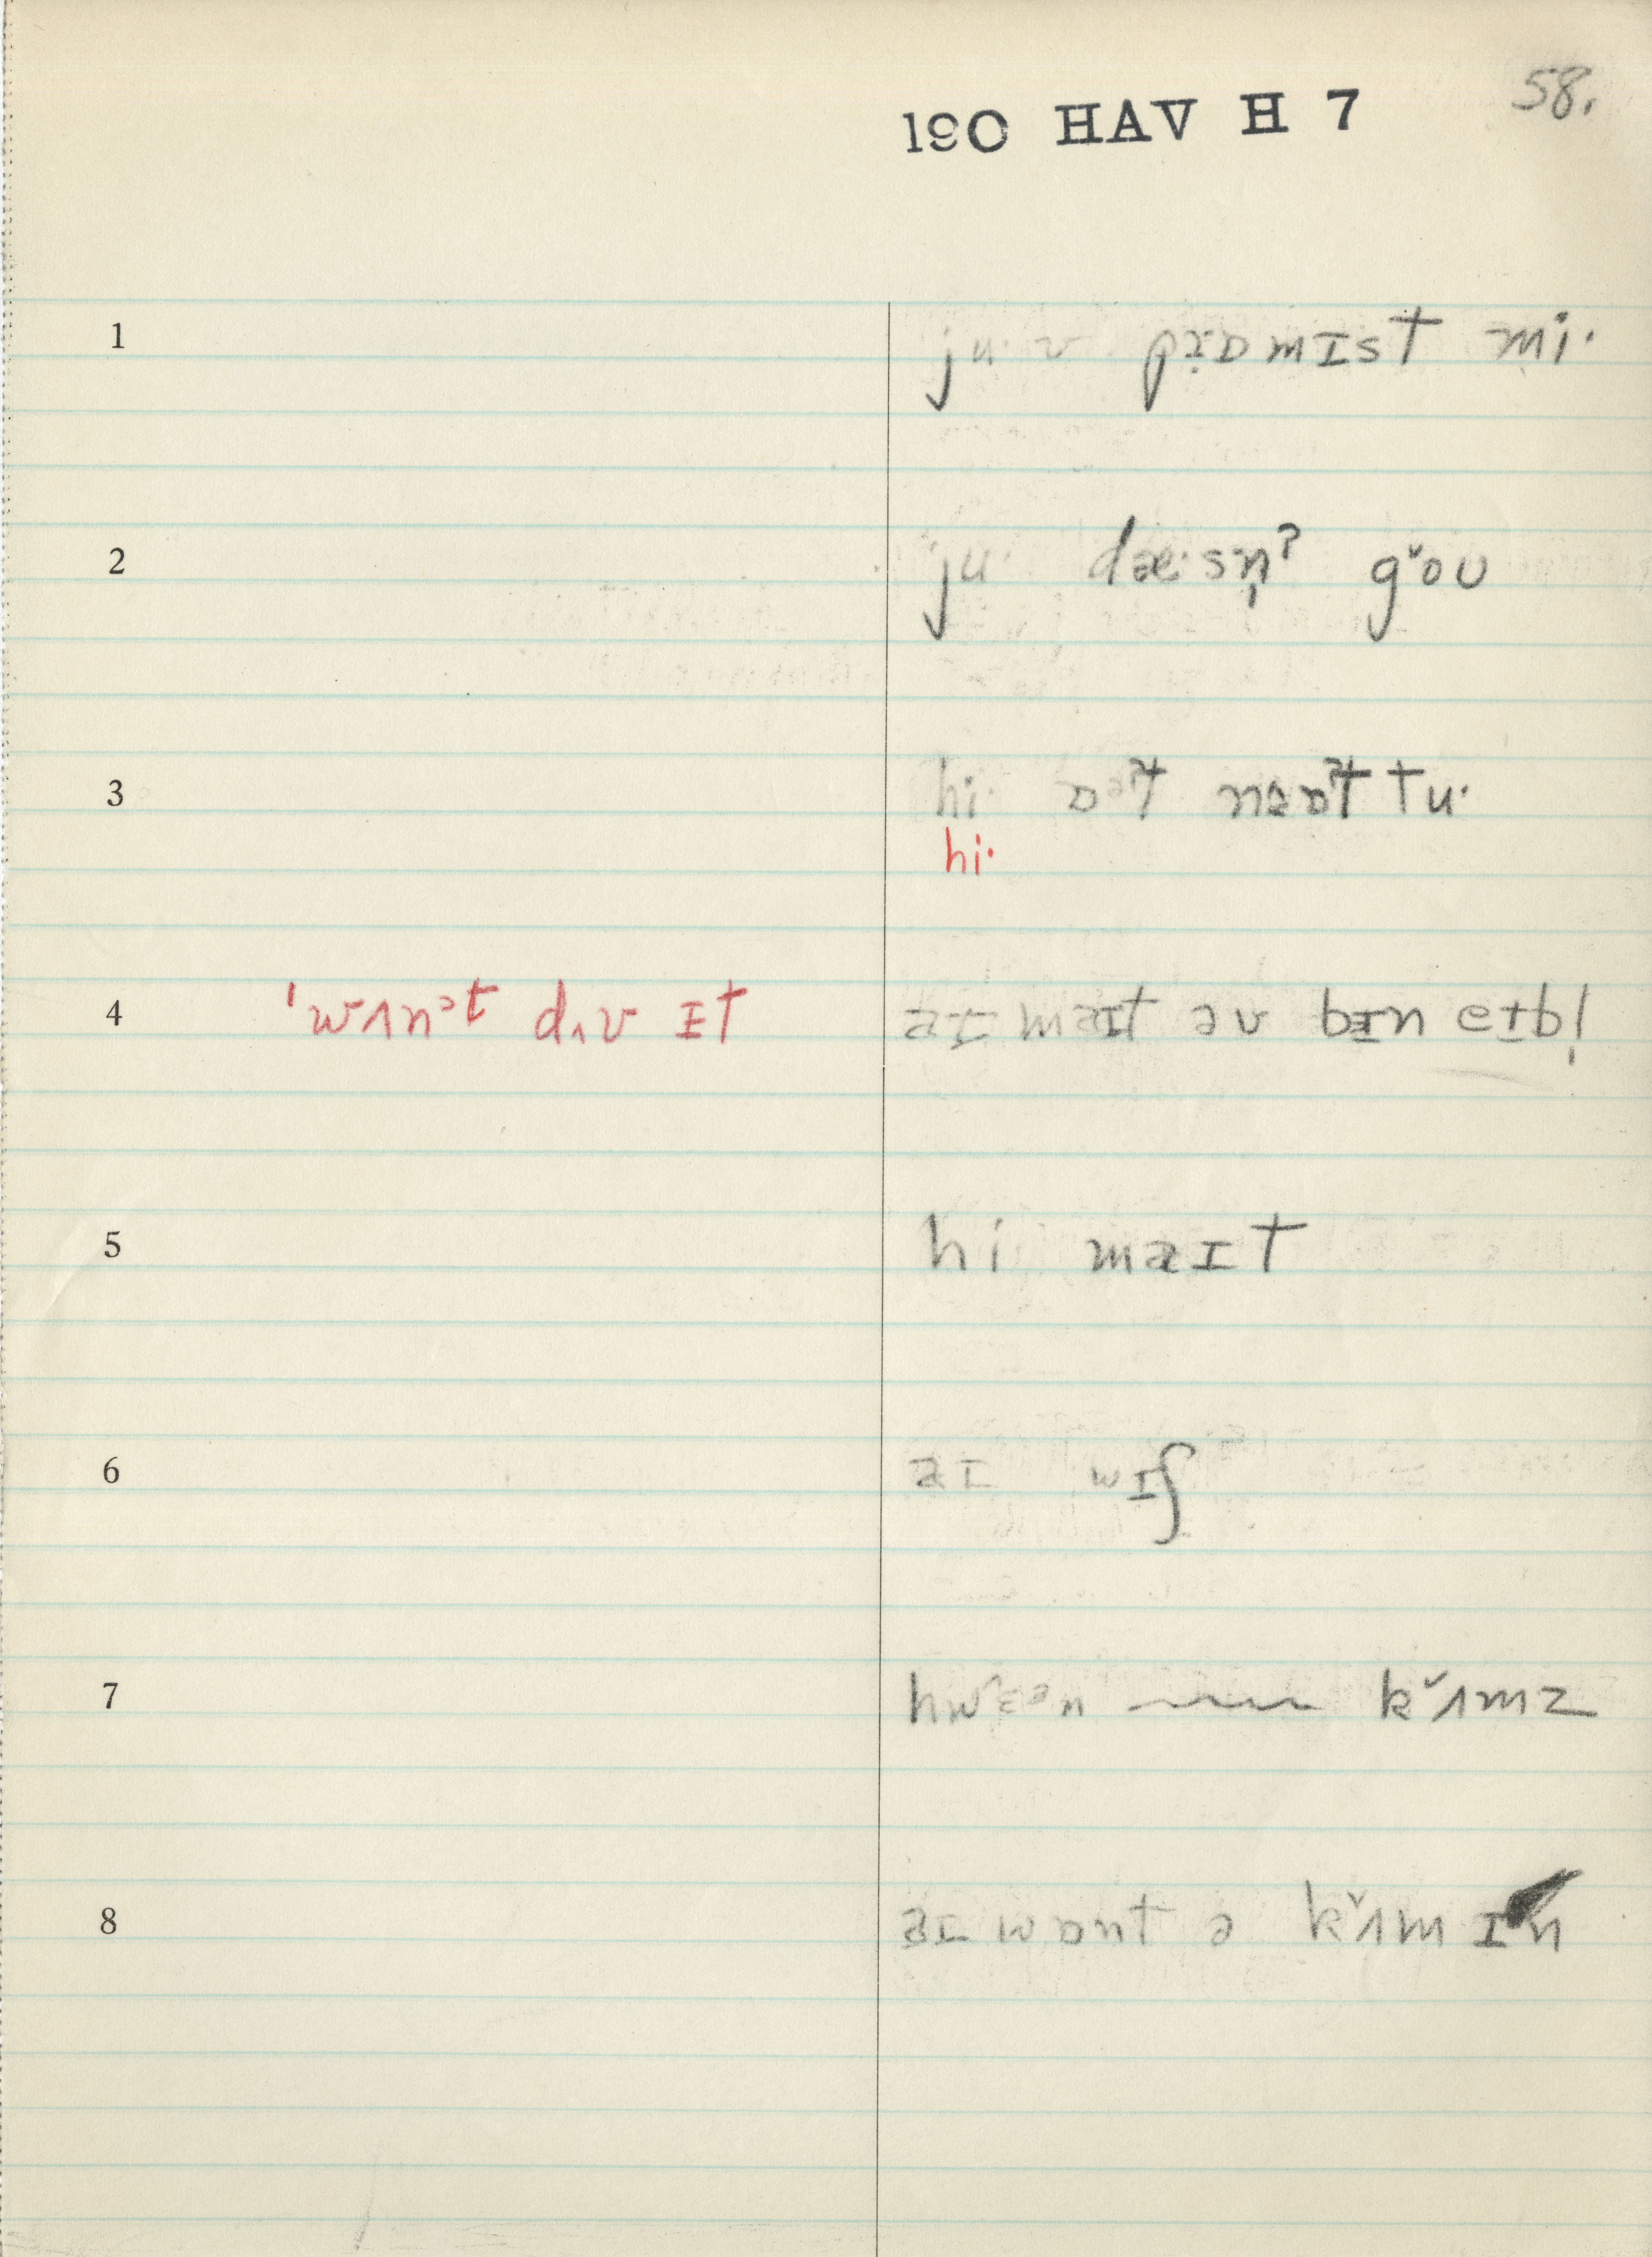 190 HAV H 7 58.
1 ju· v pɹ̣ɒmɪst mi·
2 ju· dæ·sn̩ˀ gˇoʊ
3 hi· ɒˀt nɐɒˀt tu·
hi·
4 ˈwʌnᵊt dʌv ɪt aɪ maɪt əv bɪn eɪbl̩
5 hi maɪt
6 aɪ wɪʃ
7 hwɛᵊn ~~~ kˇʌmz
8 aɪ wɒnt ə kˇʌm ɪn